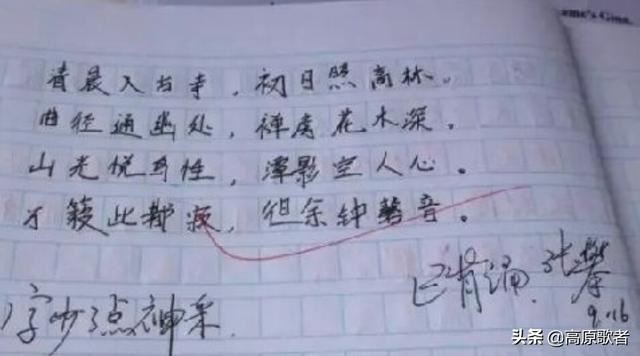 清晨入古寺，初日照高林。
曲径通幽处，禅房花木深。
山光悦鸟性，潭影空人心。
万籁此都寂，但余钟磬音。
已背诵.张攀
9.16
字少了点神采.
头条 @高原歌者